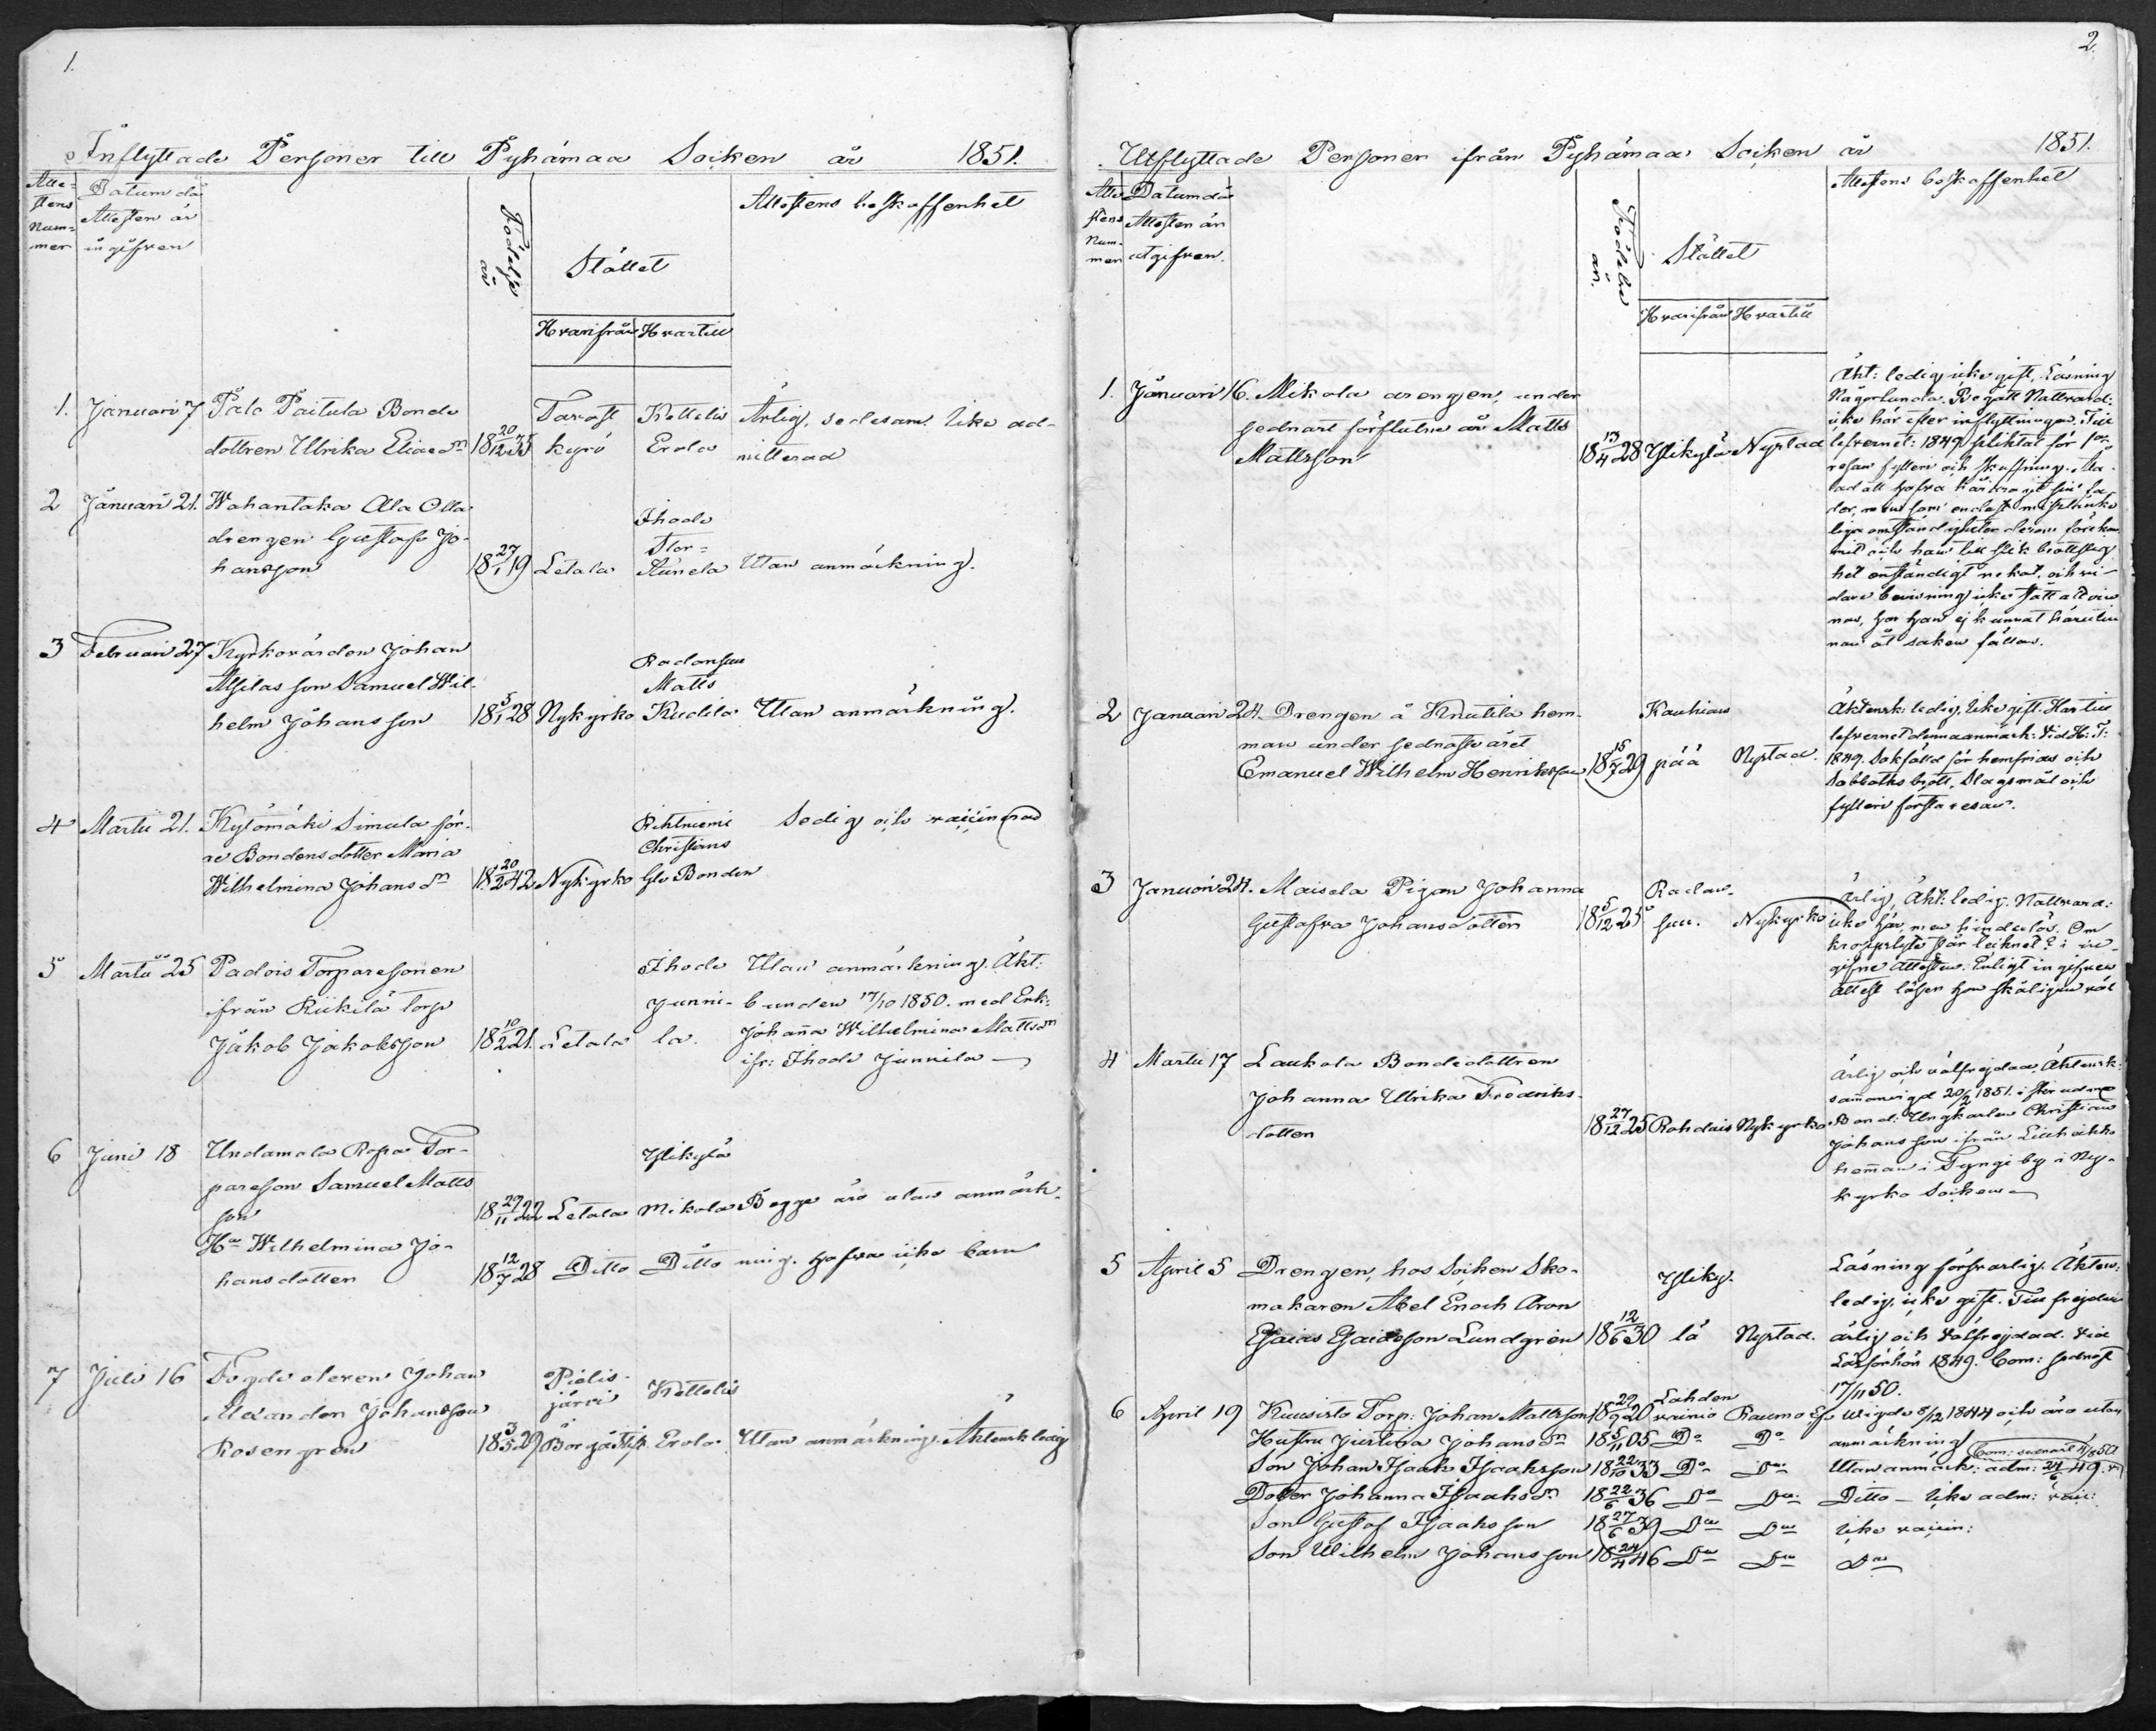 1.
Inflyttade Personer till Pyhämaa Socken år 1851.
Atte-
stens
Num-
mer
Datum då
Attesten är
ingifven
Födelse
år
Stället
Hvarifrån Hvartill
Attestens beskaffenhet
1. Januari 7 Palo Paitula Bonde
dottren Ulrika Eliaedr
18 20/12 35
Tavast
kyrö
Kettelis
Erola
Ärlig, sedesam. Icke ad-
mitterad
2 Januari 21. Wahantaka Ala Olla
drengen Gustaf Jo-
hansson
18 27/1 19 Letala
Ihode
Stor-
Aunela Utan anmärkning.
3 Februari 27 Kyrkovärden Johan
Alsilas son Samuel Wil-
helm Johansson 18 5/1 28 Nykyrko
Radansuu
Matts
Kudila Utan anmärkning.
4 Martii 21. Kylömäki Simula för-
re Bondens dotter Maria
Wilhelmina Johansdr 18 20/2 42 Nykyrko
Rihtniemi
Christians
Glo Bonden
Sedig och vaccinerad
5 Martii 25 Padois Torparesonen
ifrån Riikilä torp
Jakob Jakobsson 18 10/2 21. Letala
Ihode
Junni-
la.
Utan anmärkning. Äkt:
bunden 17/10 1850. med Enk:
Johanna Wilhelmina Mattsdr
ifr: Ihode Junnila
6 Juni 18 Undamala Ropa Tor-
pareson Samuel Matts
son 18 29/11 22 Letala
Ylikylä
Mikola Begge äro utan anmärk-
Hu Wilhelmina Jo-
hansdotter 18 12/7 28 Ditto Ditto ning. hafva icke barn
7 Juli 16 Fogde eleven Johan
Alexander Johansson
Rosengren 18 3/5 29
Pielis-
järvi
Borgåstift.
Kettelis
Erola. Utan anmärkning. Äktensk. ledig
2.
Utflyttade Personer ifrån Pyhämaa Socken år 1851.
Atte-
stens
Num-
mer
Datum då
Attesten är
utgifven.
Födelse
år.
Stället
Hvarifrån Hvartill
Attestens beskaffenhet
1. Januari 16. Mikola drengen, under
sednast förflutne år Matts
Mattsson 18 13/4 28 Ylikylä Nystad
Äkt: ledig icke gift. Läsning
Någorlunda. Begått Nattvard:
icke här efter inflyttningen. Till
lefvernet: 1849 pliktat för 1sta
resan fylleri och
der, men som endast
liga omständigheter deri förekom-
mit och han till slik brottslig-
het enständigt nekat, och vi-
dare bevisning icke stått att vin-
nas, har han ej kunnat härutin-
nan åt saken fällas.
2 Januari 24. Drengen å Knutila hem-
man under sednaste året
Emanuel Wilhelm Henriksson 18 15/7 29
Kauhian
pää Nystad.
Äktensk: ledig. Icke gift. Har till
lefvernet denna anmärk: Vid H: T:
1849. Sakfälld för hemfrids och
Sabbaths brott, Slagsmål och
fylleri första resan.
3 Januari 24. Maisela Pigan Johanna
Gustafva Johansdotter 18 5/12 25
Radan-
suu. Nykyrko
Ärlig, Äkt: ledig. Nattvard:
icke här, men hinderlös. Om
kroppslyte här teiknet? i in-
gifne attesten. Enligt ingifven
attest läser hon skäligen väl
4 Martii 17 Laukola Bondedottren
Johanna Ulrika Fredriks-
dotter 18 27/12 25 Rohdais Nykyrko
Ärlig och välfrejdad, Äktensk:
sammanvigd 20/2 1851. efter
Bond: Ungkarlen Christian
Johansson ifrån
hemman i Tyngi by i Ny-
kyrko Socken
5 April 5 Drengen, hos Socken Sko-
makaren Abel Enoch Aron
Esaias Esaiasson Lundgren 18 12/6 30
Yliky-
lä Nystad.
Läsning försvarlig. Äkten:
ledig, icke gift. Till frejden
ärlig och välfrejdad. Vid
Läsförhör 1849. Com: sednast
17/11 50.
6 April 19 Kuusisto Torp: Johan Mattsson 18 22/9 20
Lahden
vainio Raumo Vigde 8/12 1844 och äro utan
Hustru Justina Johansdr 18 5/11 05 Do Do anmärkning Com: sednast
Son Johan Isaak Isaaksson 18 22/10 33 Do Do Utan anmärk: adm: 24/6 49.
Dotter Johanna Isaaksdr 18 22/6 36 Do Do Ditto — Icke adm: vac:
Son Gustaf Isaaksson 18 27/6 39 Do Do Icke vaccin:
Son Wilhelm Johansson 18 24/4 46 Do Do Do